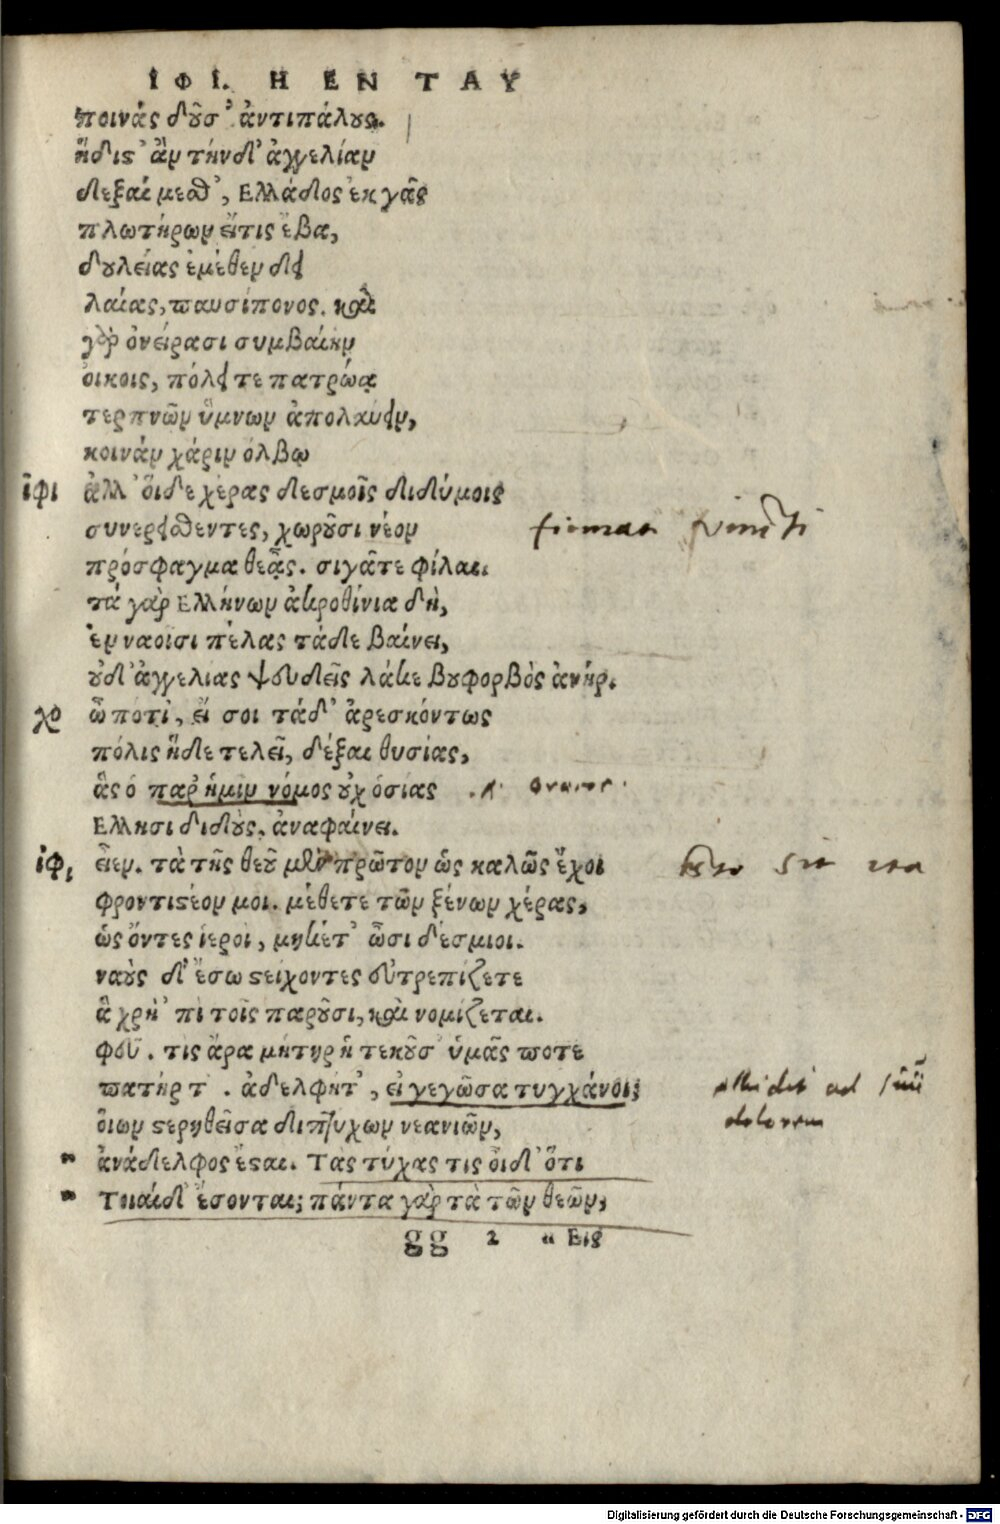 ΙΦΙ. Η ΕΝ ΤΑΥ
ποινὰς δοῦσ' ἀντιπάλους.
ἥδιστ' ἂν τήνδ' ἀγγελίαν
δεξαίμεσθ', Ελλάδος ἐκ γᾶς
πλωτήρων εἴτις ἔβα,
δουλείας ἐμέθεν δει
λαίας, παυσίπονος. καὶ
γὰρ ὀνείρασι συμβαίην
οἴκοις, πόλει τε πατρώᾳ
τερπνῶν ὕμνων ἀπολαύειν,
κοινὰν χάριν ὄλβῳ
ἰφι ἀλλ' οἵδε χέρας δεσμοῖς διδύμοις
συνερεισθέντες, χωροῦσι νέον
πρόσφαγμα θεᾶς. σιγᾶτε φίλαι.
τὰ γὰρ Ελλήνων ἀκροθίνια δὴ,
ἐν ναοῖσι πέλας τάδε βαίνει,
οὐδ' ἀγγελίας ψευδεῖς λάκε βουφορβὸς ἀνήρ.
χο ὦ ποτὶ, εἴ σοι τάδ' ἀρεσκόντως
πόλις ἥδε τελεῖ, δέξαι θυσίας,
ἃς ὁ παρ' ἡμῖν νόμος οὐχ ὁσίας
Ελλησι διδοὺς, ἀναφαίνει.
ἰφ, εἶεν. τὰ τῆς θεοῦ μὲν πρῶτον ὡς καλῶς ἔχοι
φροντιστέον μοι. μέθετε τῶν ξένων χέρας,
ὡς ὄντες ἱεροὶ, μηκέτ' ὦσι δέσμιοι.
ναοὺς δ' ἔσω στείχοντες εὐτρεπίζετε
ἃ χρὴ 'πὶ τοῖς παροῦσι, καὶ νομίζεται.
φεῦ. τις ἄρα μήτηρ ἡ τεκοῦσ' ὑμᾶς ποτε
πατήρ τ'. ἀδελφήτ', εἰ γεγῶσα τυγχάνοι;
οἵων στερηθεῖσα διπτύχων νεανιῶν,
ἀνάδελφος ἔσται. Τὰς τύχας τις οἶδ' ὅτι
Τοιαίδ' ἔσονται; πάντα γὰρ τὰ τῶν θεῶν,
allidit ad suū
dolorem
gg 2 " Εἰς
Digitalisierung gefördert durch die Deutsche Forschungsgemeinschaft - DFG